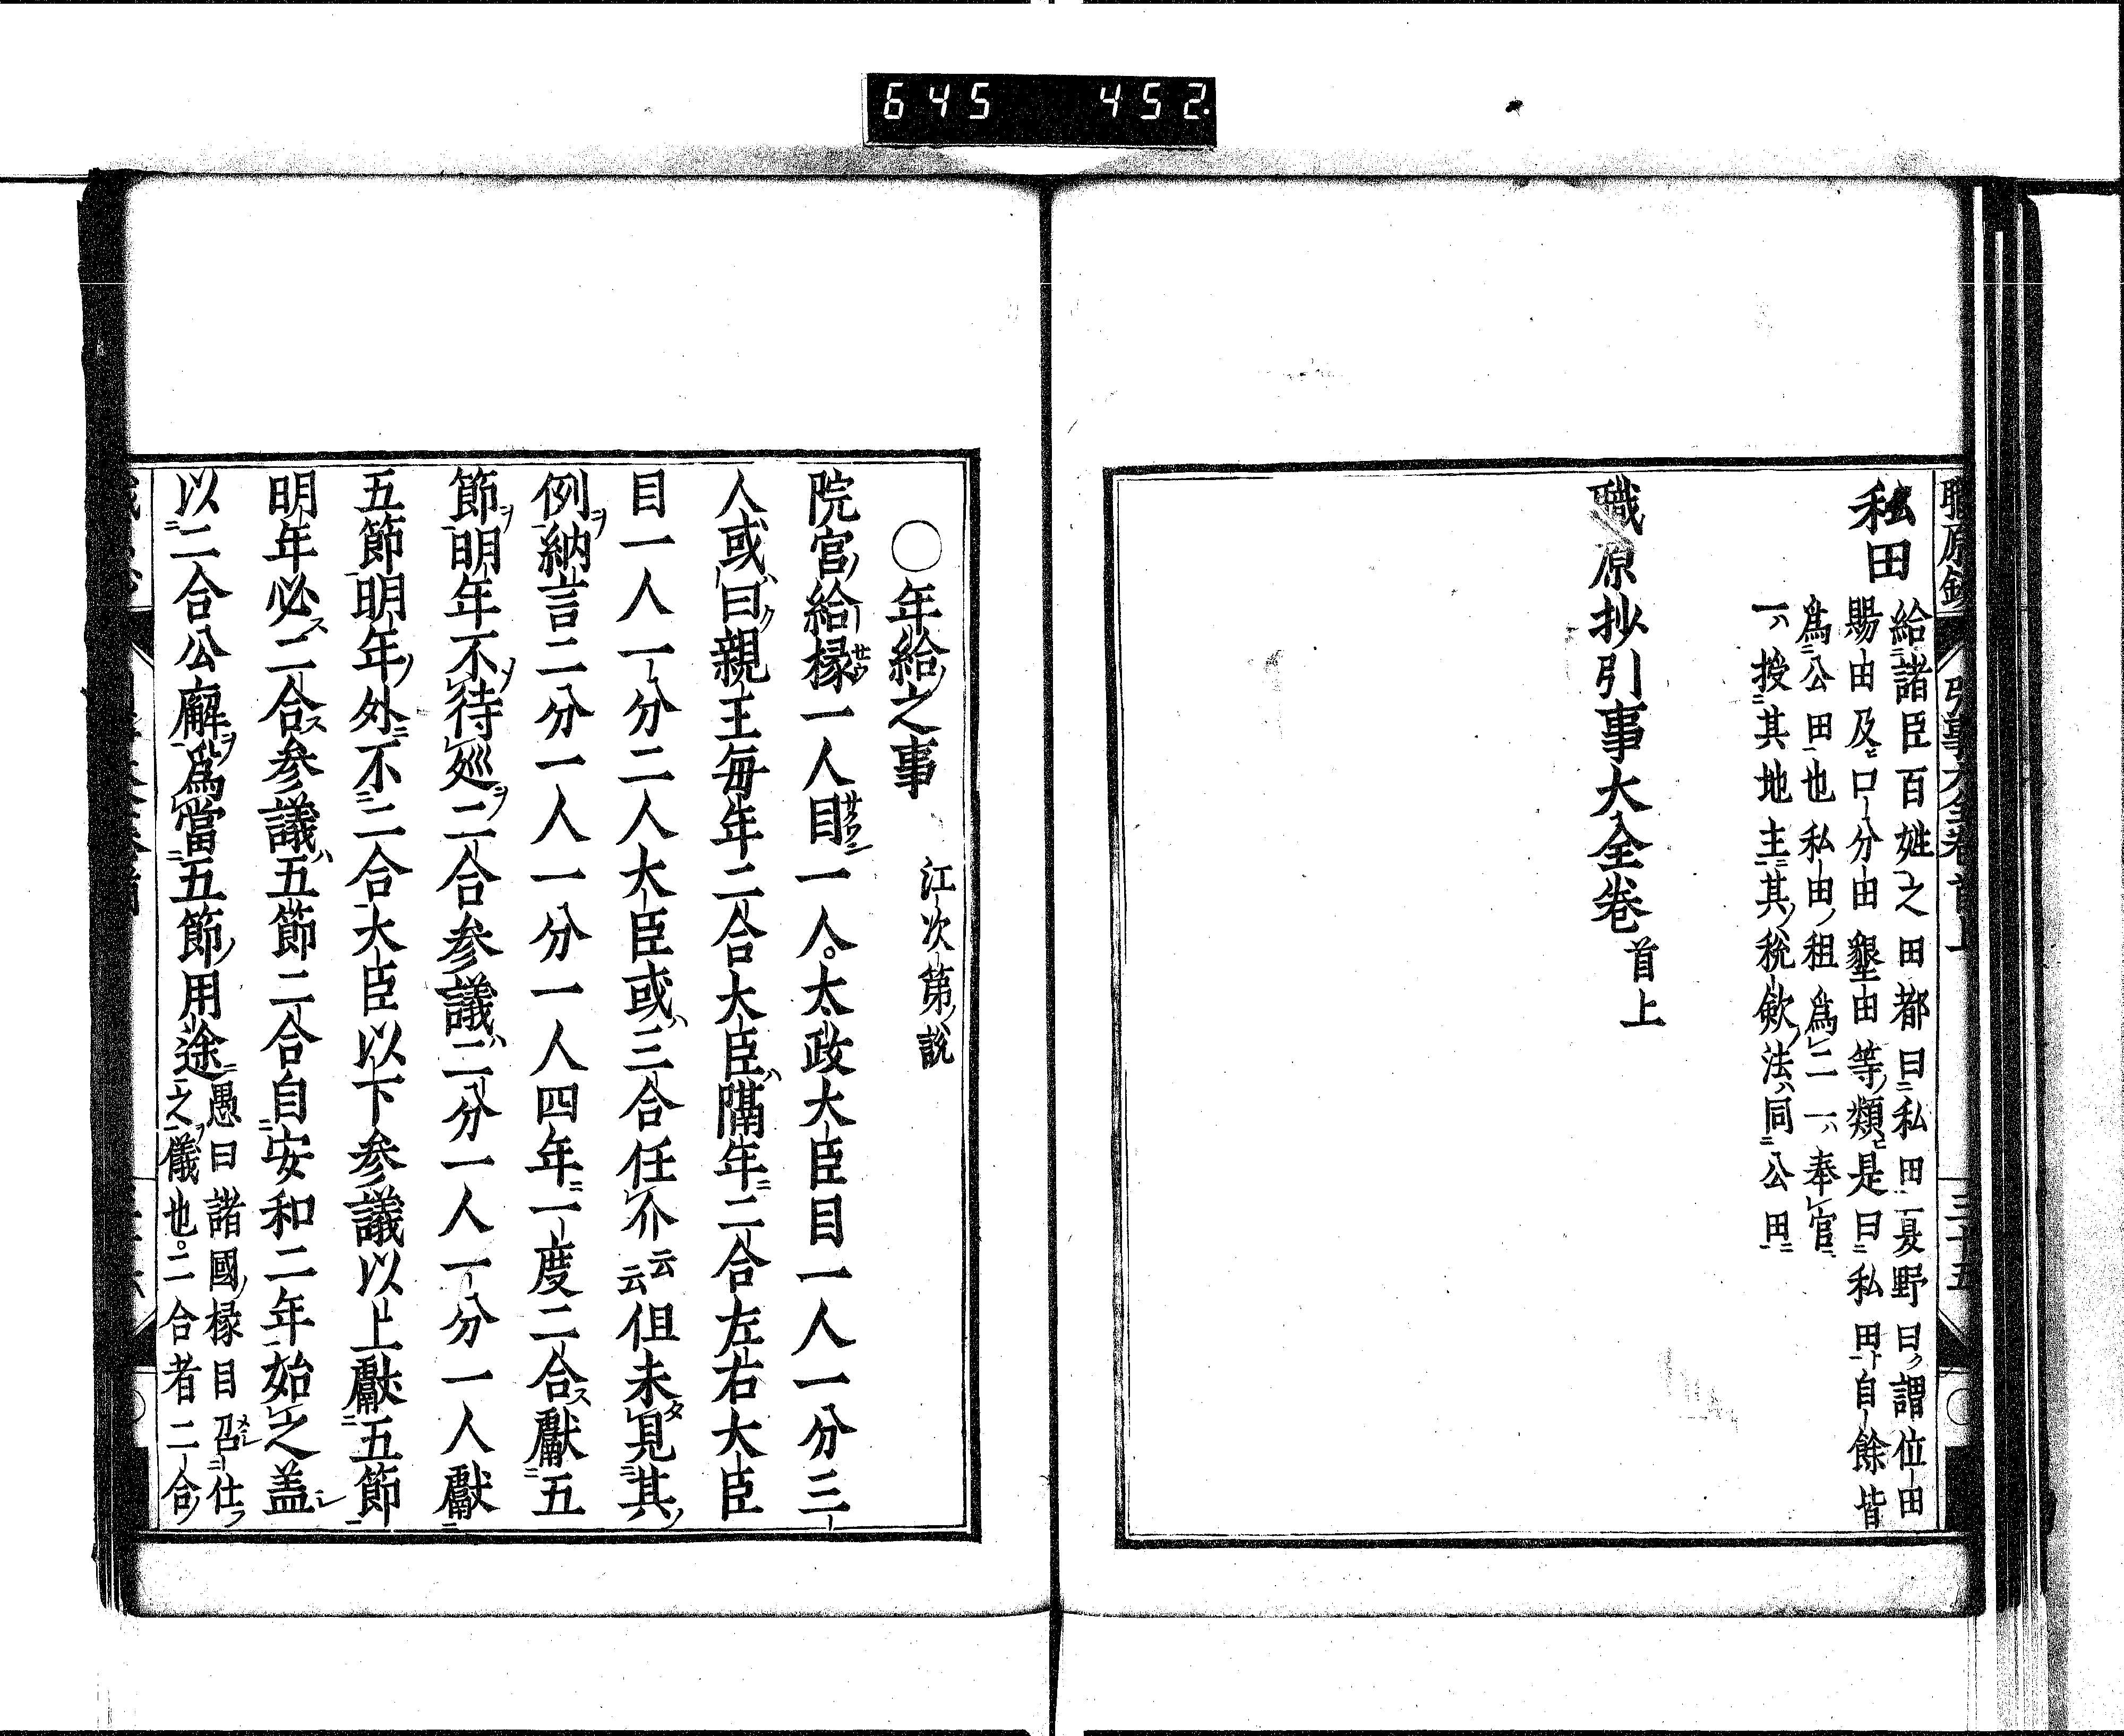 645 452.
私田
給諸臣百姓之田都曰私田一夏野曰謂位田
賜田及口分田墾田等類是曰私田自餘皆
為公田也私田租為二一奉官
一授其地主其稅歛法同公田
職原抄引事大全卷首上
三十五
〇年給之事 江次第說
院宮給掾一人目一人。太政大臣目一人一分三
人或曰親王每年二合大臣隔年二合左右大臣
目一人一分二人大臣或三合任介云云但未見其
例納言二分一人一分一人四年一度二合獻五
節明年不待巡二合參議二分一人一分一人獻
五節明年外不二合大臣以下參議以上獻五節
明年必二合參議五節二合自安和二年始之盖
以二合公廨為當五節用途
愚曰諸國掾目召仕
之儀也。二合者二合